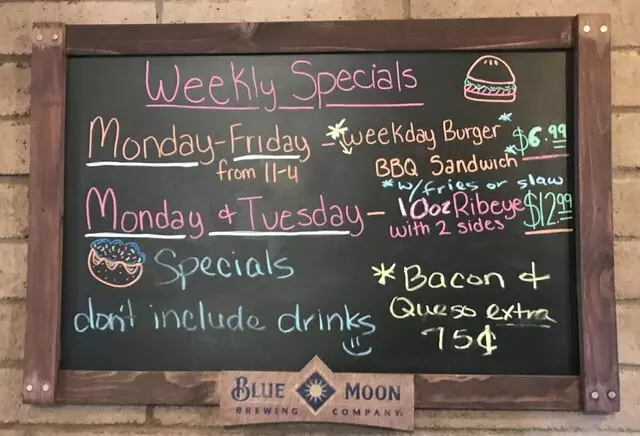 Weekly Specials
Monday-Friday - *weekday Burger* $6.99
from 11-4
BBQ Sandwich*
*w/fries or slaw
Monday & Tuesday - 10oz Ribeye $12.99
with 2 sides
Specials
don't include drinks
*Bacon &
Queso extra
75¢
BLUE MOON
BREWING COMPANY